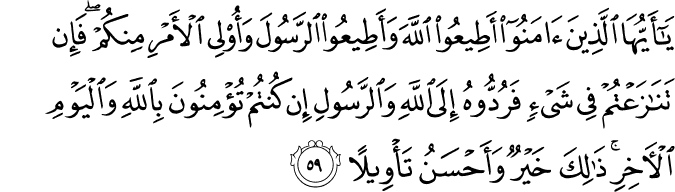 يَـٰٓأَيُّهَا ٱلَّذِينَ ءَامَنُوٓا۟ أَطِيعُوا۟ ٱللَّهَ وَأَطِيعُوا۟ ٱلرَّسُولَ وَأُو۟لِى ٱلْأَمْرِ مِنكُمْ ۖ فَإِن
تَنَـٰزَعْتُمْ فِى شَىْءٍ فَرُدُّوهُ إِلَى ٱللَّهِ وَٱلرَّسُولِ إِن كُنتُمْ تُؤْمِنُونَ بِٱللَّهِ وَٱلْيَوْمِ
ٱلْـَٔاخِرِ ۚ ذَٰلِكَ خَيْرٌ وَأَحْسَنُ تَأْوِيلًا ٥٩